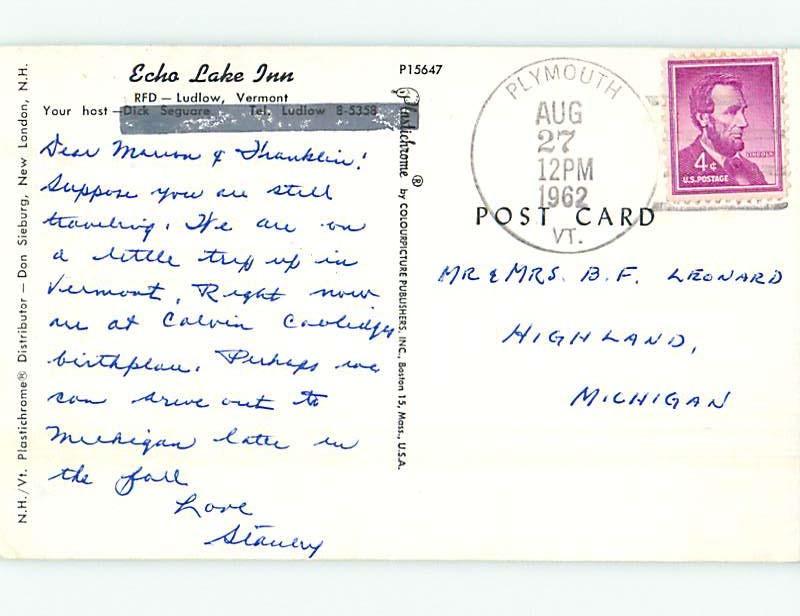 Echo Lake Inn
RFD — Ludlow, Vermont
Your host — Dick Seguare Tel. Ludlow 8-5358
Dear Marion & Franklin!
Suppose you are still
traveling. We are on
a little trip up in
Vermont. Right now
are at Calvin Coolidges
birthplace. Perhaps we
can drive out to
Michigan later in
the fall
Love
N.H./Vt. Plastichrome® Distributor — Don Sieburg, New London, N.H.
P15647
Plastichrome® by COLOURPICTURE PUBLISHERS, INC., Boston 15, Mass., U.S.A.
PLYMOUTH
AUG
27
12PM
1962
VT.
4¢
LINCOLN
U.S. POSTAGE
POST CARD
MR & MRS. B. F. LEONARD
HIGHLAND,
MICHIGAN